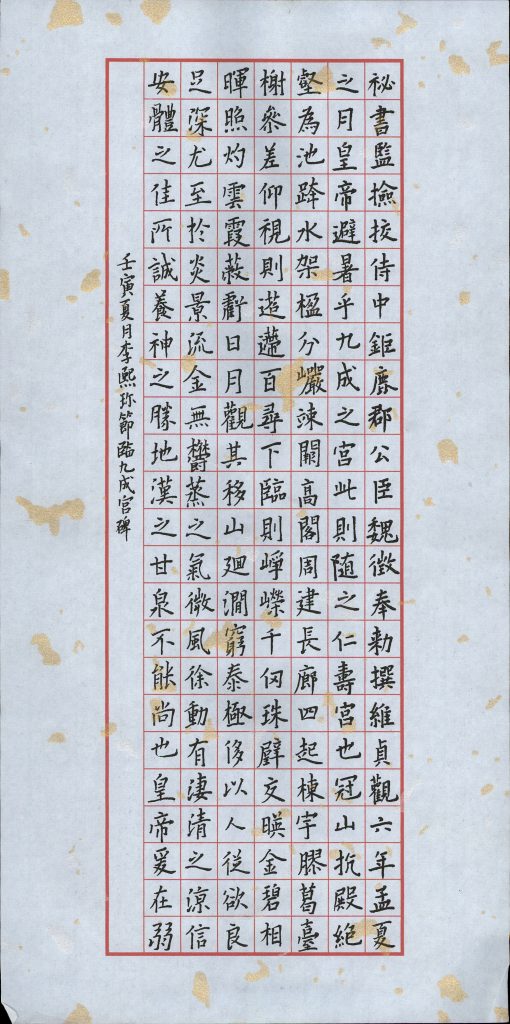 祕書監撿挍侍中鉅鹿郡公臣魏徵奉勑撰維貞觀六年孟夏
之月皇帝避暑乎九成之宮此則随之仁壽宮也冠山抗殿絶
壑為池跨水架楹分巖竦闕高閣周建長廊四起棟宇膠葛臺
榭叅差仰視則迢遰百尋下臨則崢嶸千仞珠壁交暎金碧相
暉照灼雲霞蔽虧日月觀其移山廻澗窮泰極侈以人從欲良
足深尤至於炎景流金無欝蒸之氣微風徐動有淒清之凉信
安體之佳所誠養神之勝地漢之甘泉不能尚也皇帝爰在弱
壬寅夏月李熙珎節臨九成宮碑